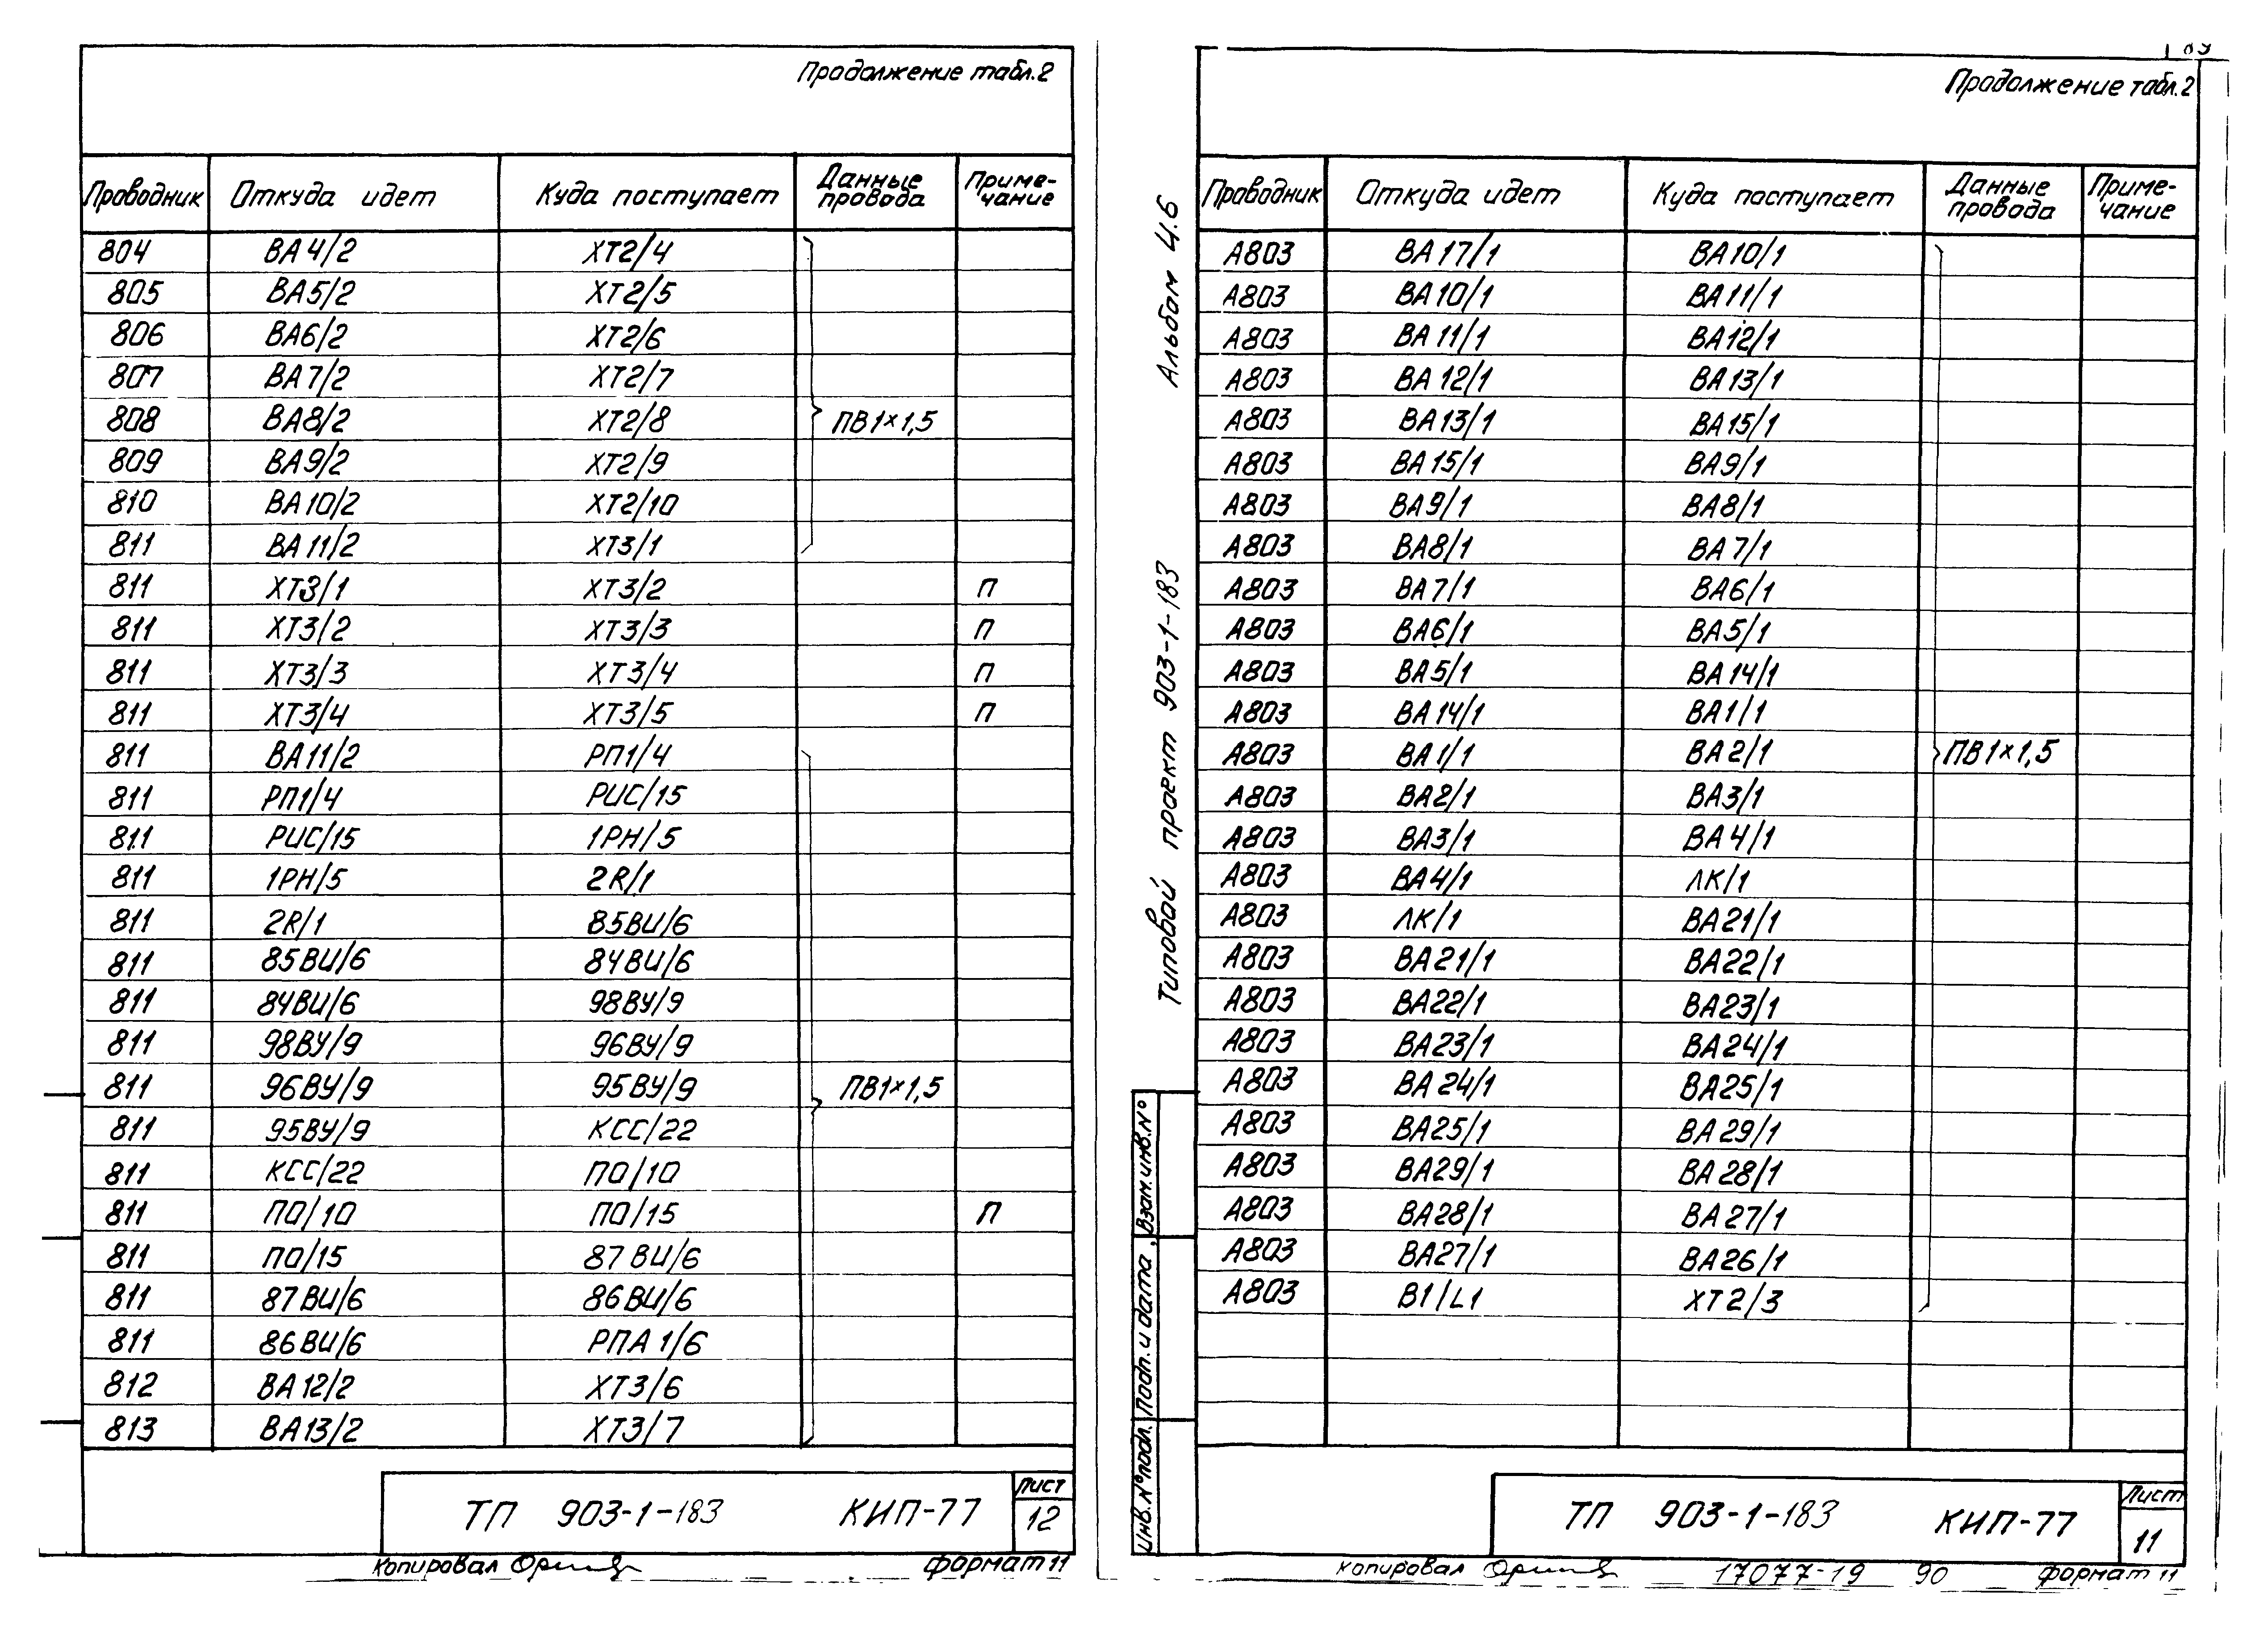 Продолжение табл.2
Проводник Откуда идет Куда поступает Данные провода Приме-чание
804 ВА4/2 ХТ2/4
805 ВА5/2 ХТ2/5
806 ВА6/2 ХТ2/6
807 ВА7/2 ХТ2/7
808 ВА8/2 ХТ2/8 ПВ1×1,5
809 ВА9/2 ХТ2/9
810 ВА10/2 ХТ2/10
811 ВА11/2 ХТ3/1
811 ХТ3/1 ХТ3/2 П
811 ХТ3/2 ХТ3/3 П
811 ХТ3/3 ХТ3/4 П
811 ХТ3/4 ХТ3/5 П
811 ВА11/2 РП1/4
811 РП1/4 РИС/15
811 РИС/15 1РН/5
811 1РН/5 2R/1
811 2R/1 85ВИ/6
811 85ВИ/6 84ВИ/6
811 84ВИ/6 98ВУ/9
811 98ВУ/9 96ВУ/9
811 96ВУ/9 95ВУ/9 ПВ1×1,5
811 95ВУ/9 КСС/22
811 КСС/22 ПО/10
811 ПО/10 ПО/15 П
811 ПО/15 87ВИ/6
811 87ВИ/6 86ВИ/6
811 86ВИ/6 РПА1/6
812 ВА12/2 ХТ3/6
813 ВА13/2 ХТ3/7
ТП 903-1-183 КИП-77 Лист 12
Копировал Формат 11
Продолжение табл.2
Альбом 4.6
Типовой проект 903-1-183
Взам.инв.№
Подп. и дата
Инв.№подл.
Проводник Откуда идет Куда поступает Данные провода Приме-чание
А803 ВА17/1 ВА10/1
А803 ВА10/1 ВА11/1
А803 ВА11/1 ВА12/1
А803 ВА12/1 ВА13/1
А803 ВА13/1 ВА15/1
А803 ВА15/1 ВА9/1
А803 ВА9/1 ВА8/1
А803 ВА8/1 ВА7/1
А803 ВА7/1 ВА6/1
А803 ВА6/1 ВА5/1
А803 ВА5/1 ВА14/1
А803 ВА14/1 ВА1/1
А803 ВА1/1 ВА2/1 ПВ1×1,5
А803 ВА2/1 ВА3/1
А803 ВА3/1 ВА4/1
А803 ВА4/1 ЛК/1
А803 ЛК/1 ВА21/1
А803 ВА21/1 ВА22/1
А803 ВА22/1 ВА23/1
А803 ВА23/1 ВА24/1
А803 ВА24/1 ВА25/1
А803 ВА25/1 ВА29/1
А803 ВА29/1 ВА28/1
А803 ВА28/1 ВА27/1
А803 ВА27/1 ВА26/1
А803 В1/L1 ХТ2/3
ТП 903-1-183 КИП-77 Лист 11
Копировал 17077-19 90 Формат 11